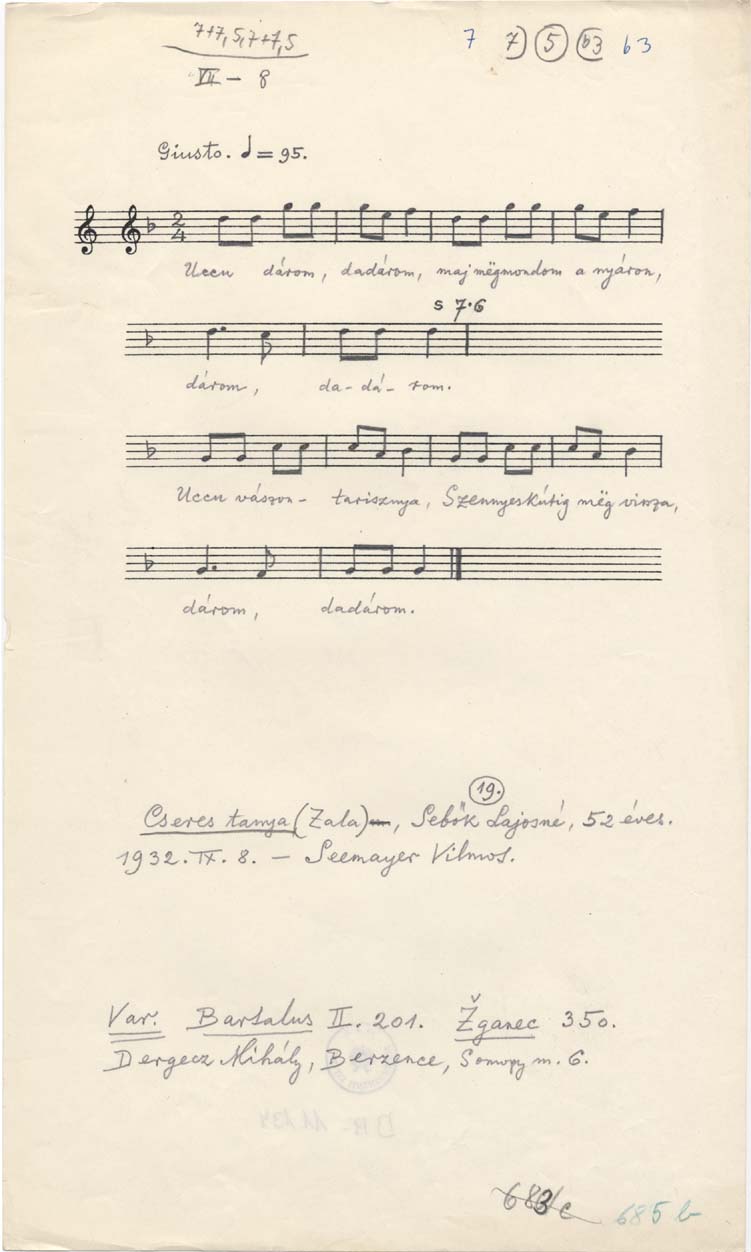 7+7, 5, 7+7, 5
VII – 8
7 7) (5) (b3 b3
Giusto. ♩ = 95.
2/4
Uccu dárom, dadárom, maj mëgmondom a nyáron,
s 7·6
dárom, da-dá-rom.
Uccu vászon-tarisznya, Szennyeskútig mëg vissza,
dárom, dadárom.
19.
Cseres tanya (Zala), Sebők Lajosné, 52 éves.
1932. IX. 8. – Seemayer Vilmos.
Var. Bartalus II. 201. Žganec 350.
Dergecz Mihály, Berzence, Somogy m. 6.
683/c 685 b